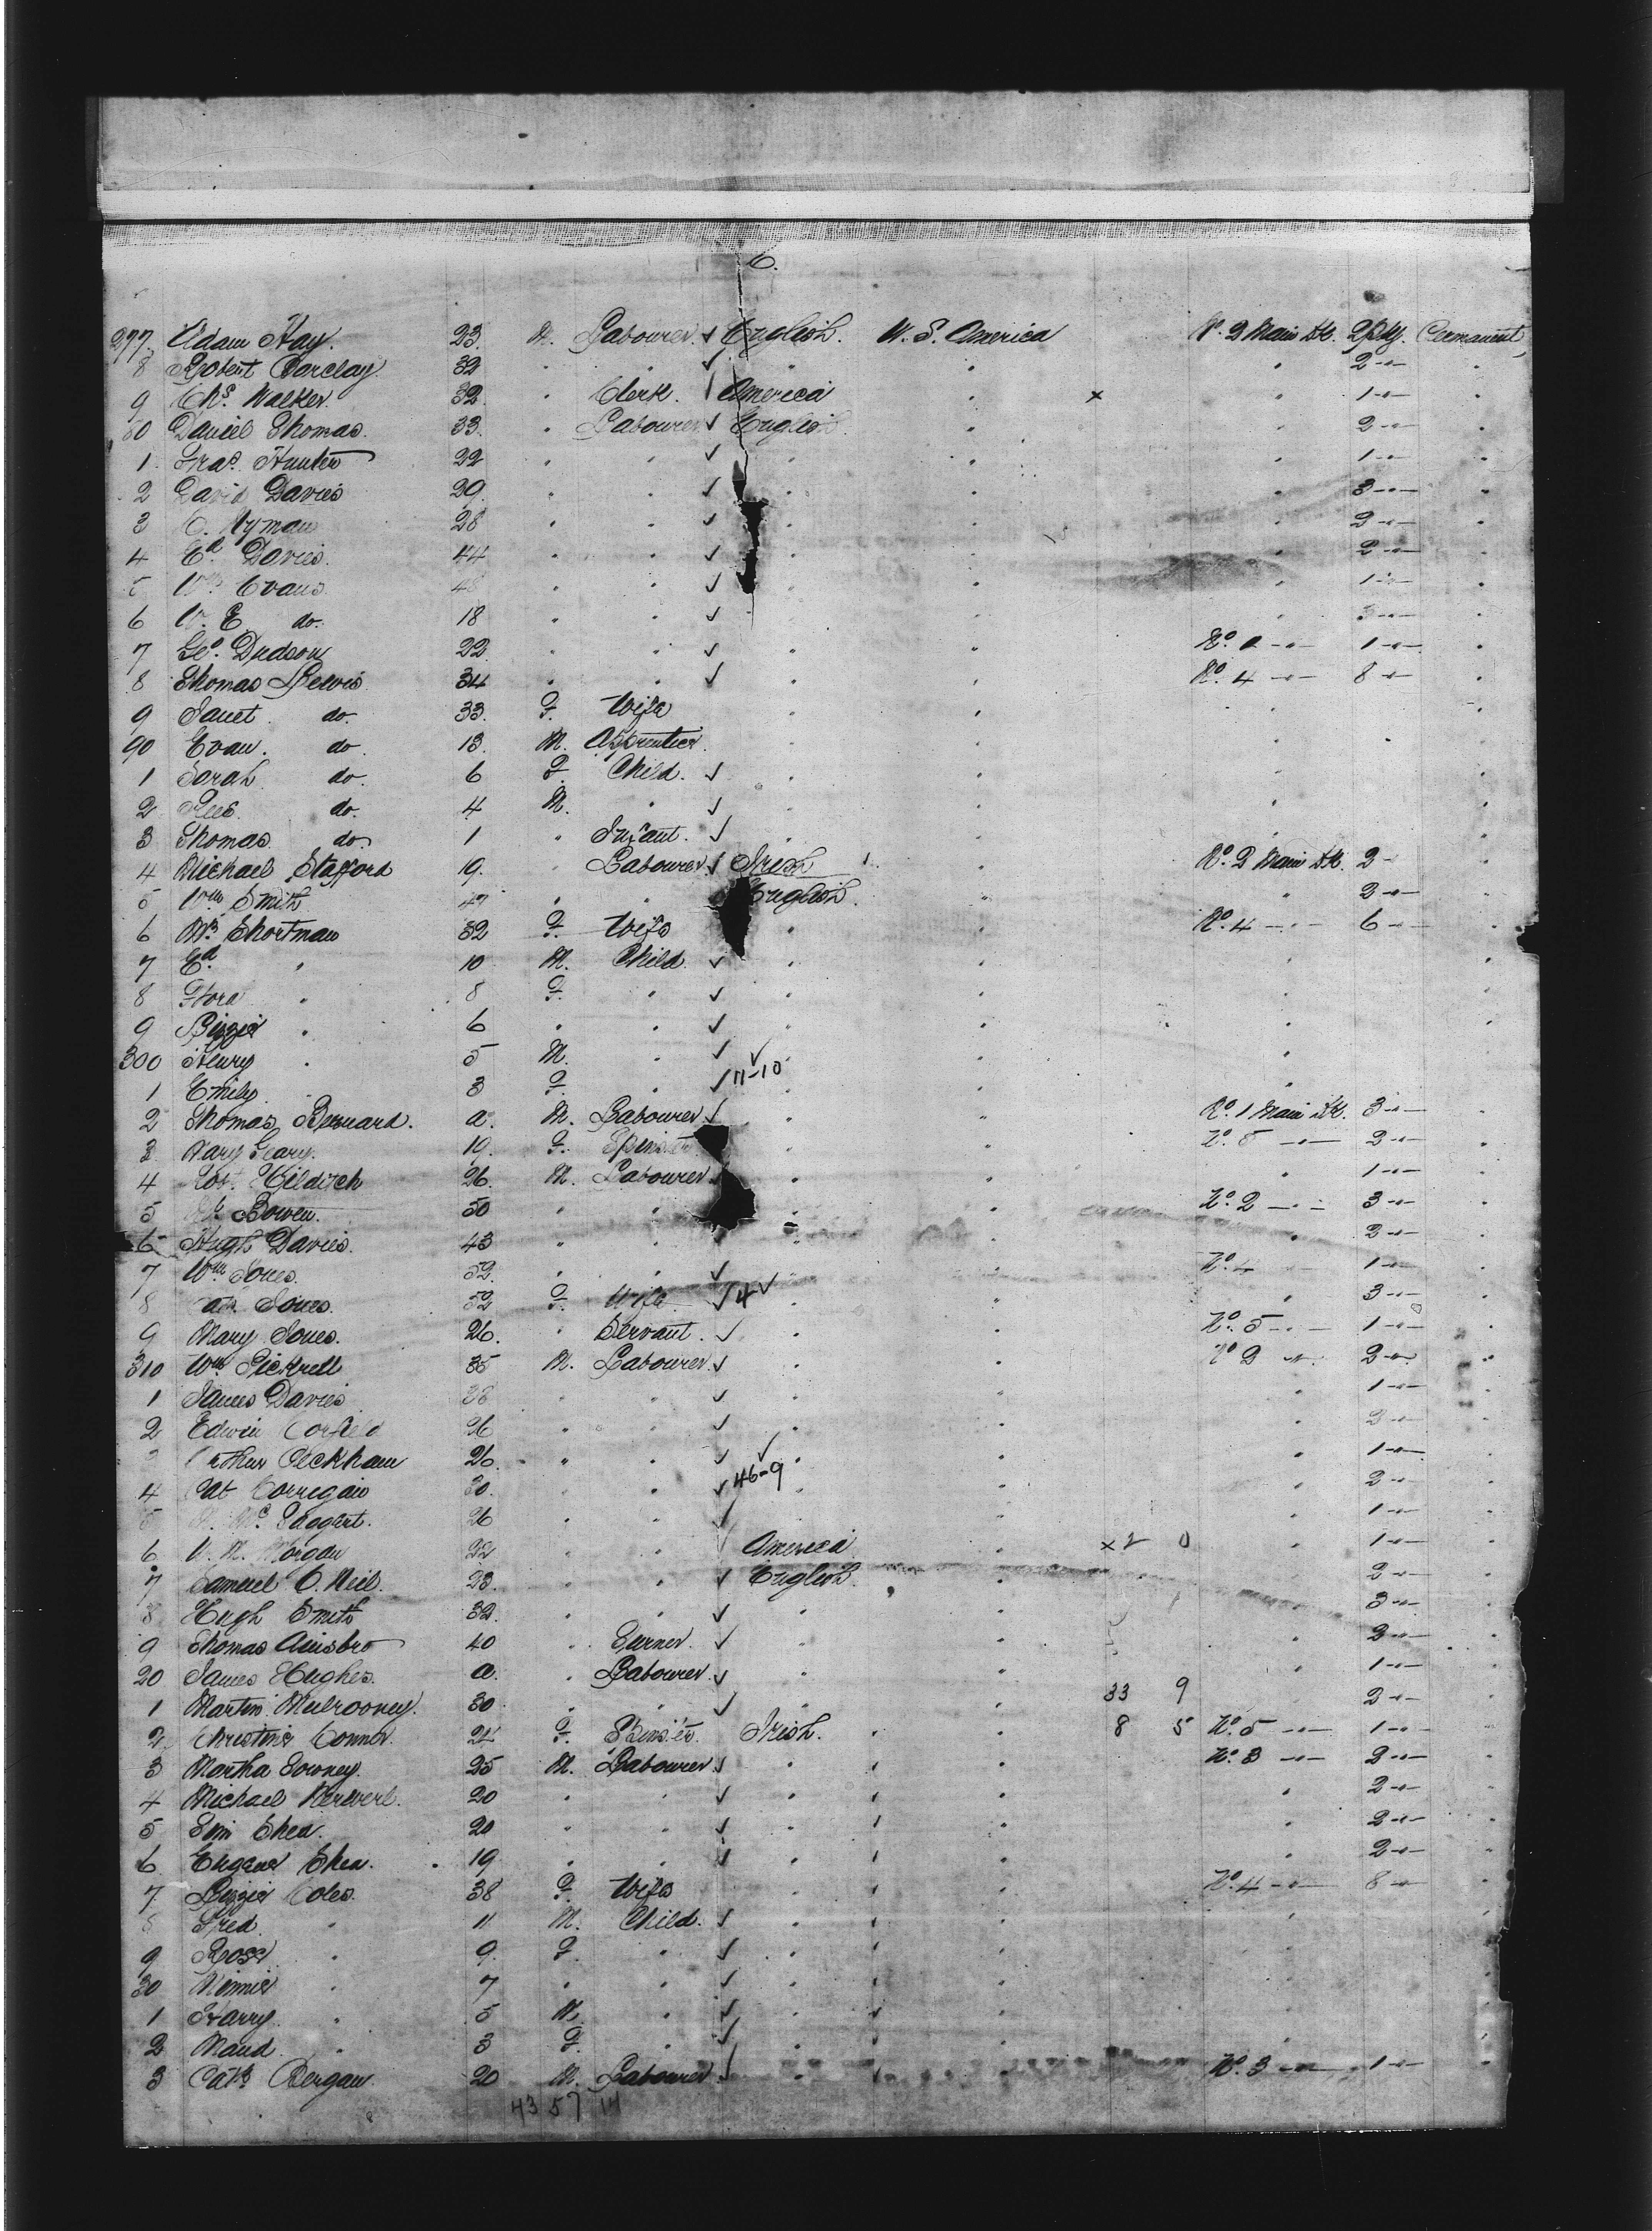 6.
277 Adam Hay. 23. M. Labourer ✓ English. U. S. America No. 2 Main Dk. 2 Pkg. Permanent
8 Robert Barclay. 32 " " ✓ " " " 2 -"- "
9 Chs. Walker. 32. " Clerk. ✓ America " × " 1 -"- "
80 Daniel Thomas. 33. " Labourer ✓ English " " 2 -"- "
1 Hunter 22 " " ✓ " " " 1 -"- "
2 David Davies 29 " " ✓ " " " 3 -"- "
3 Nyman 28 " " ✓ " " " 2 -"- "
4 Ed. Davies. 44 " " ✓ " " " 2 -"-
5 Wm. Evans 48 " " ✓ " " " 1 -"- "
6 W. E. do. 18 " " ✓ " " " 3 -"- "
7 Geo. Dudson 22 " " ✓ " " No. -"- 1 -"- "
8 Thomas Lewis 34 " " ✓ " " No. 4 -"- 8 -"- "
9 Janet do. 33. F. Wife " " " "
90 Evan. do. 13. M. Apprentice. " " " " "
1 Sarah do. 6 F. Child. ✓ " " "
2 Rees. do. 4 M. " ✓ " " " "
3 Thomas do. 1 " Infant. ✓ " " " "
4 Michael Stafford 19. " Labourer ✓ Irish " No. 2 Main Dk. 2 - "
5 Wm. Smith 47 " " English. " " 2 -"- "
6 Mrs. Shortman 32 F. Wife " " No. 4 -"- 6 -"- "
7 Ed. " 10 M. Child. ✓ " " " "
8 Flora " 8 F. " ✓ " " " "
9 Lizzie " 6 " " ✓ " " " "
300 Henry " 5 M. " ✓ ✓ " " "
1 Emily 3 F. " ✓ 11-10 " " "
2 Thomas Bernard. a. M. Labourer ✓ " No. 1 Main Dk. 3 -"- "
3 Mary Geary. 19. F. Spinster " " No. 5 -"- 2 -"- "
4 Hilditch 26. M. Labourer " " " 1 -"- "
5 Bowen. 50 " " " " No. 2 -"- 3 -"- "
6 Hugh Davies. 43 " " " " 2 -"- "
7 Wm. Jones. 52. " " ✓ " No. 4 1 -"- "
8 Jones. 52 F. Wife ✓ 4 ✓ " " " 3 -"- "
9 Mary Jones. 26. " Servant. ✓ " No. 5 -"- 1 -"- "
310 Wm. Pickrell 35 M. Labourer ✓ " No 2 -"- 2 -"- "
1 James Davies 38 " " ✓ " " 1 -"- "
2 Edwin Corfield 26 " " ✓ " " 2 -"- "
3 Arthur Peckham 26. " " ✓ ✓ " " 1 -"- "
4 Pat Corregain 30. " " ✓ 46-9 " " 2 -"- "
5 Mc. Taggert. 26 " " ✓ " " 1 -"- "
6 Morgan 22 " " ✓ America " × 2 0 " 1 -"- "
7 Samuel O. Neil. 23. " " ✓ English. " " 2 -"- "
8 Hugh Smith 32. " " ✓ " " " 3 -"- "
9 Thomas Ainsbro 40 " Turner. ✓ " " " 2 -"- "
20 James Hughes. a. " Labourer ✓ " " " 1 -"- "
1 Martin Mulrooney. 30 " " ✓ " " 33 9 " 2 -"- "
2 Christina Connor. 24 F. Spinster. Irish. " " 8 5 No. 5 -"- 1 -"- "
3 Martha Downey. 25 M. Labourer ✓ " " " No. 3 -"- 2 -"- "
4 Michael 20 " " ✓ " " " " 2 -"-
5 Shea. 20 " " ✓ " " " " 2 -"- "
6 Eugene Shea. 19 " " ✓ " " " " 2 -"- "
7 Lizzie Coles. 38 F. Wife " " " No. 4 -"- 8 -"- "
8 Fred. " 11 M. Child. ✓ " " " " "
9 Rose " 9. F. " ✓ " " " "
30 Minnie " 7 " " ✓ " " " "
1 Harry. " 5 M. " ✓ " " " "
2 Maud. " 3 F. " ✓ " " " " "
3 20 M. Labourer ✓ " " " No. 3 -"- 1 -"- "
43 57 14